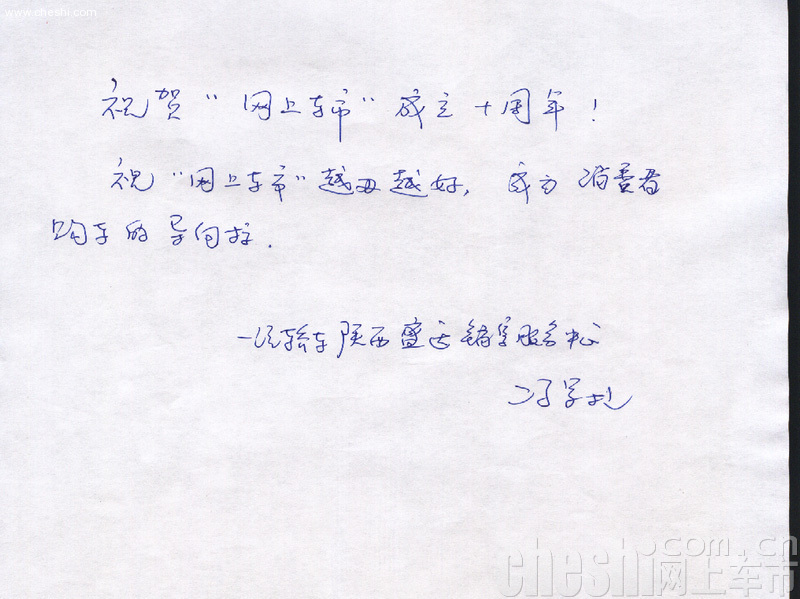 www.cheshi.com
祝贺“网上车市”成立十周年！
祝“网上车市”越办越好，成为消费者
购车的导向标.
一汽轿车陕西盛达销售服务中心
cheshi.com.cn
网上车市